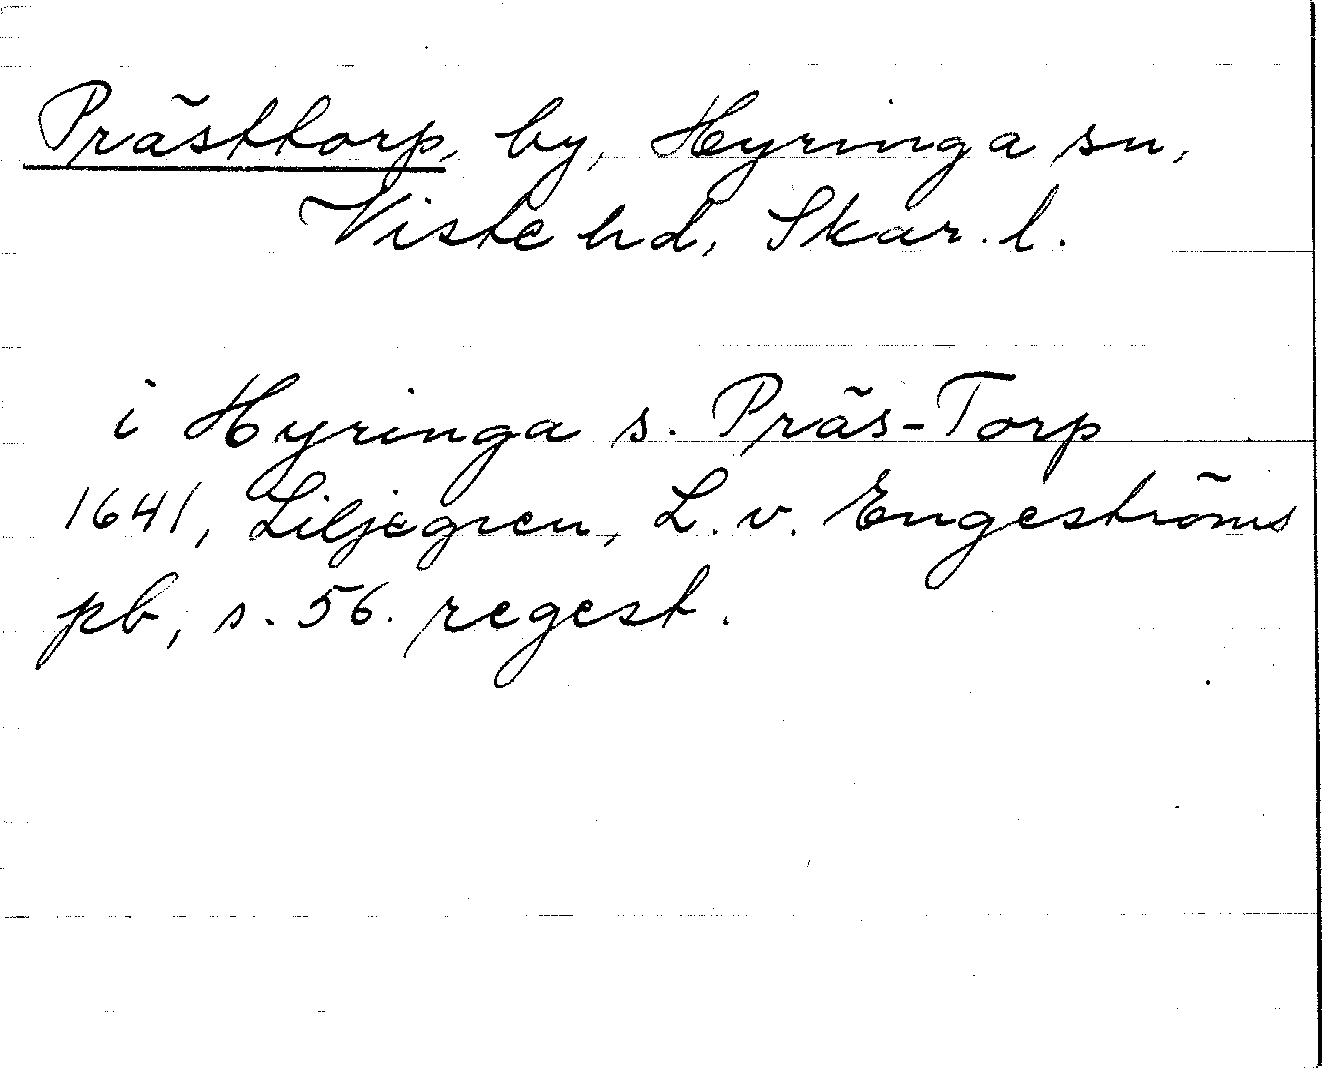 Prästtorp, by, Hyringa sn,
Viste hd, Skar. l.
i Hyringa s. Präs-Torp
1641, Liljegren, L. v. Engeströms
pb, s. 56. regest.